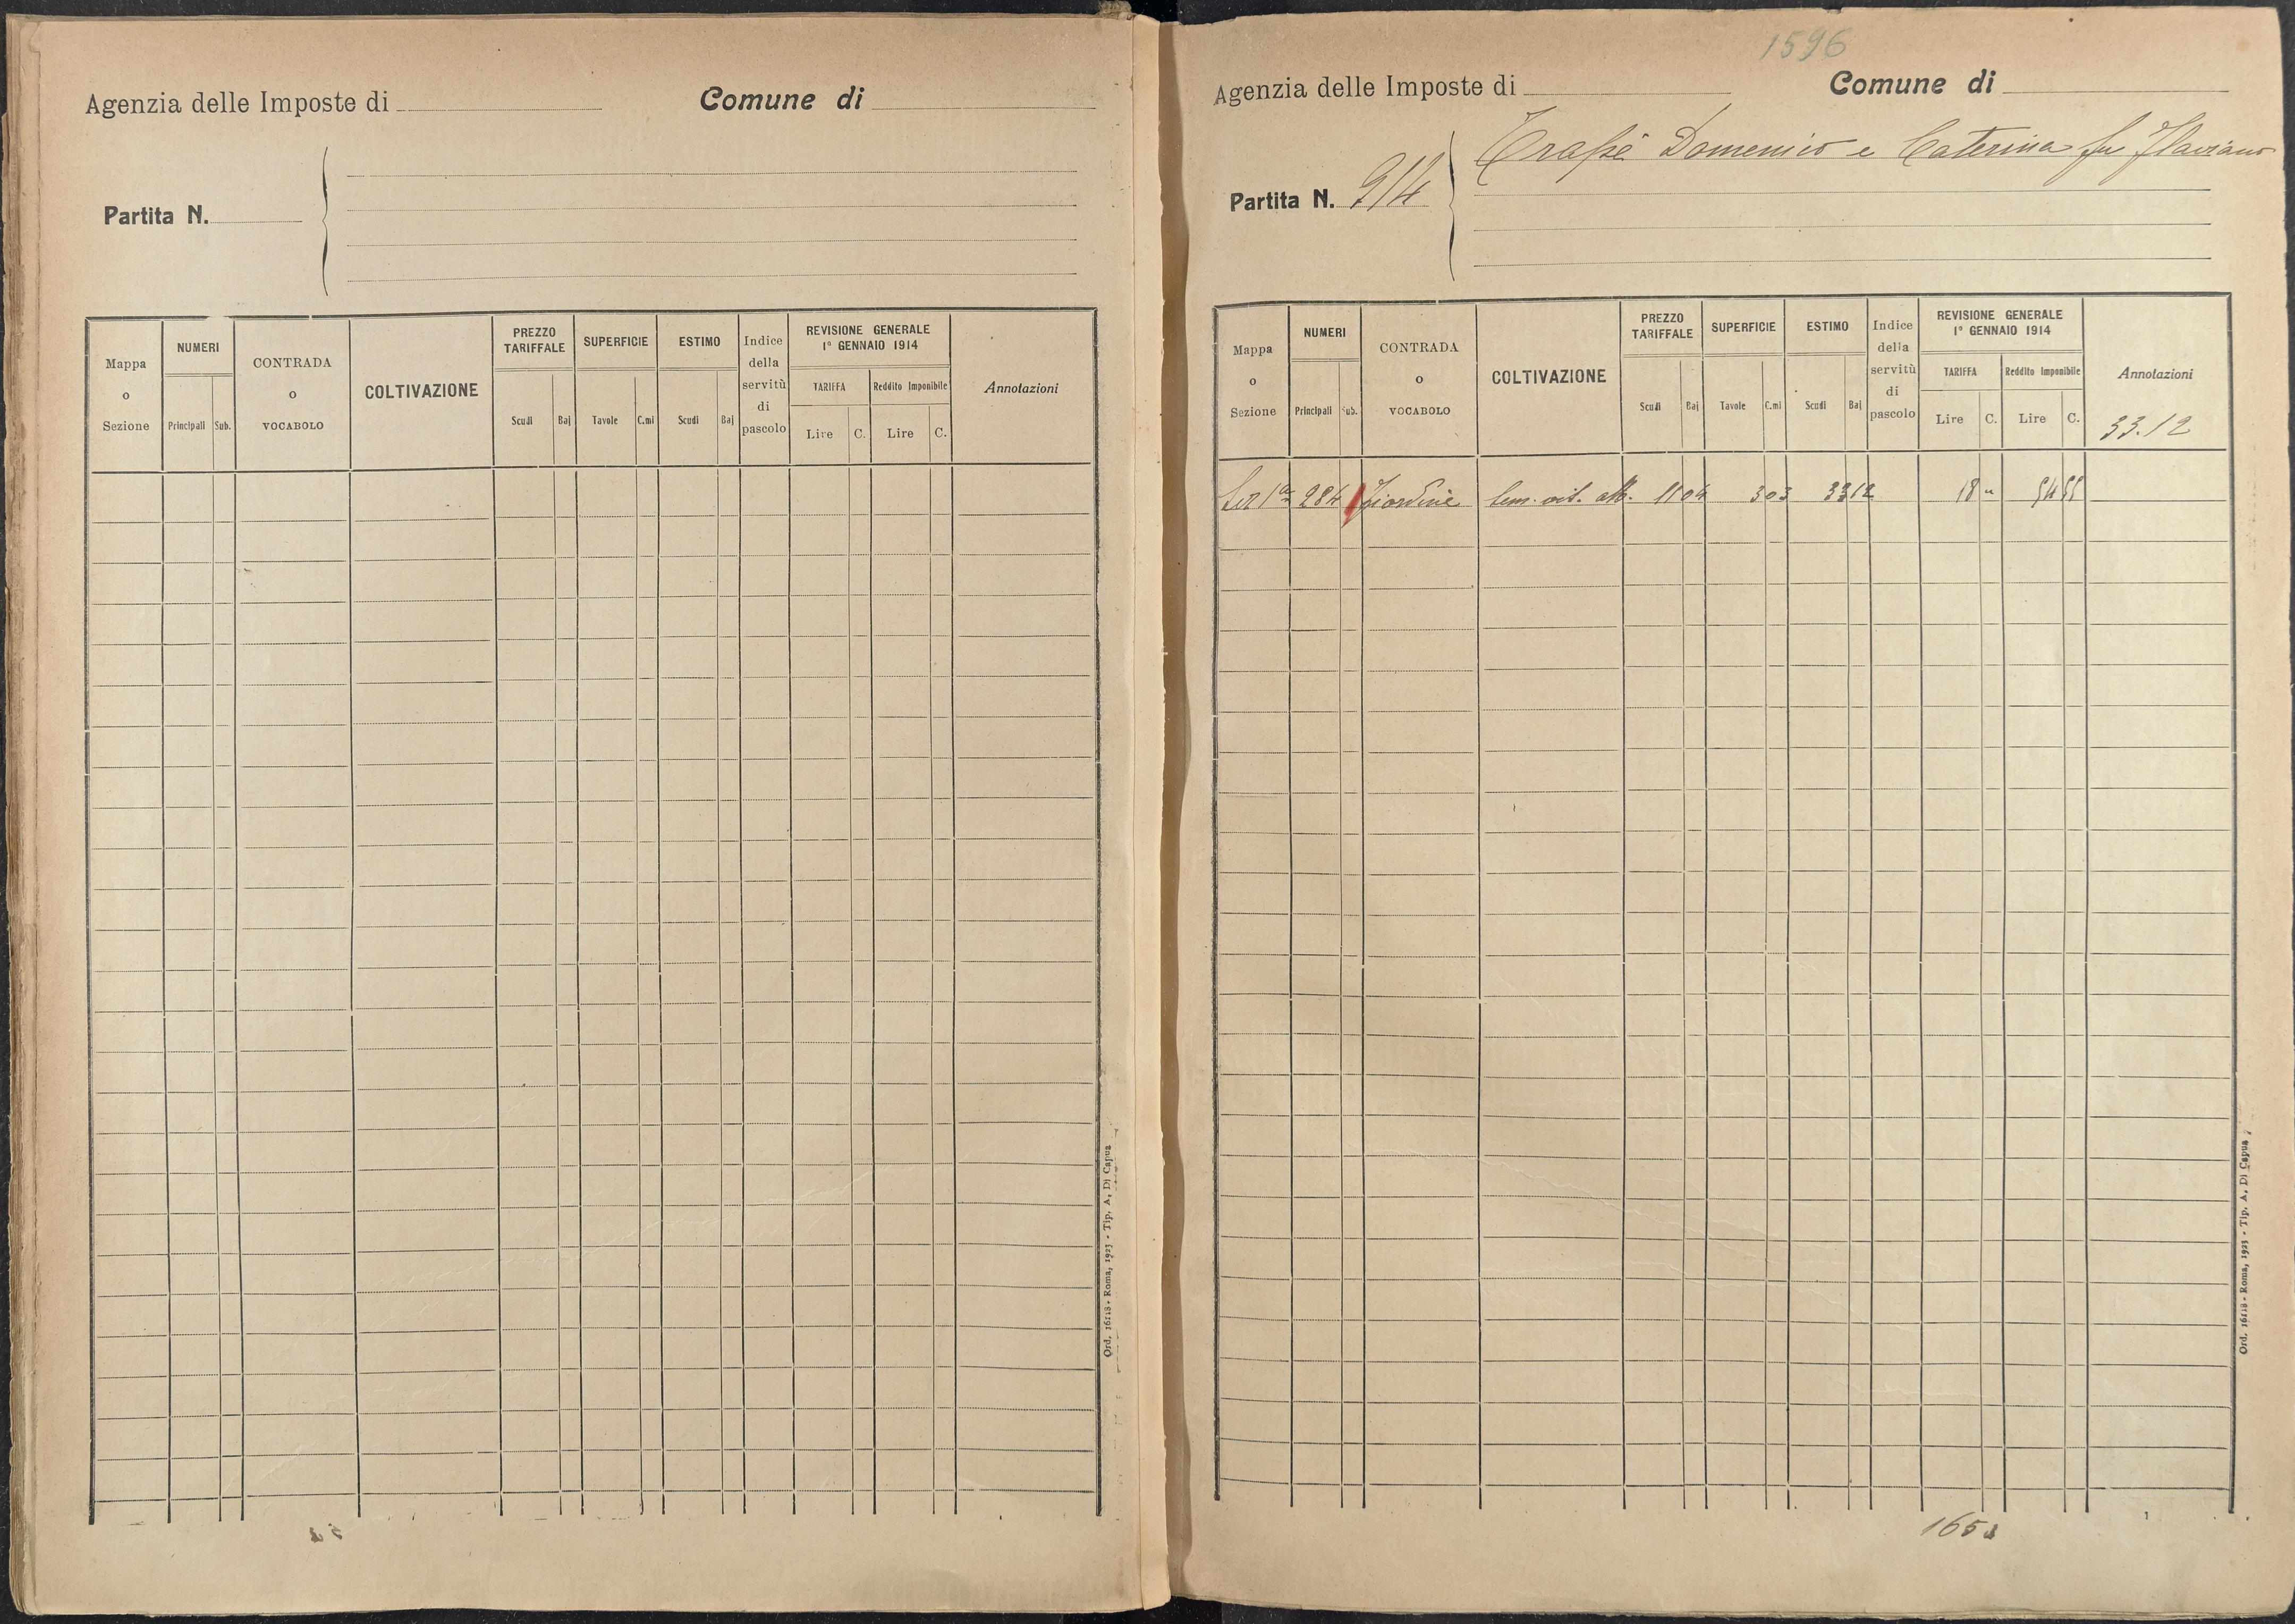 Agenzia delle Imposte di
Comune di
Partita N.
Mappa o Sezione
NUMERI
Principali
Sub.
CONTRADA o VOCABOLO
COLTIVAZIONE
PREZZO TARIFFALE
Scudi
Baj
SUPERFICIE
Tavole
C.mi
ESTIMO
Scudi
Baj
Indice della servitù di pascolo
REVISIONE GENERALE
1° GENNAIO 1914
TARIFFA
Lire
C.
Reddito Imponibile
Lire
C.
Annotazioni
Ord. 16118 - Roma, 1923 - Tip. A. Di Capua
1596
Agenzia delle Imposte di
Comune di
Domenico e Caterina fu Flaviano
Partita N. 914
Mappa o Sezione
NUMERI
Principali
Sub.
CONTRADA o VOCABOLO
COLTIVAZIONE
PREZZO TARIFFALE
Scudi
Baj
SUPERFICIE
Tavole
C.mi
ESTIMO
Scudi
Baj
Indice della servitù di pascolo
REVISIONE GENERALE
1° GENNAIO 1914
TARIFFA
Lire
C.
Reddito Imponibile
Lire
C.
Annotazioni
33.12
Sez 1a 284 Sem. vit. alb. 11 04 3 03 33 12 18 " 54 55
165
Ord. 16118 - Roma, 1923 - Tip. A. Di Capua